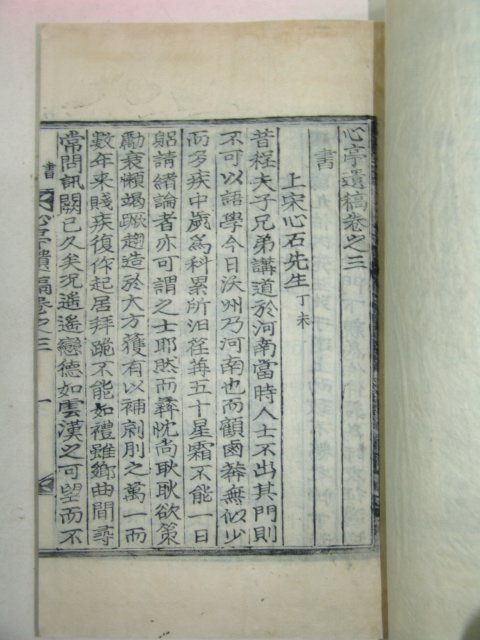 心亭遺稿卷之三
書
上宋心石先生 丁未
昔程夫子兄弟講道於河南當時人士不出其門則
不可以語學今日沃州乃河南也而顧鹵莽無似少
而多疾中歲爲科累所汨荏苒五十星霜不能一日
躬請緖論者亦可謂之士耶然而彛忱尙耿耿欲策
勵衰懶竭蹶趨造於大方獲有以補剠刖之萬一而
數年來賤疾復作起居拜跪不能如禮雖鄕曲間尋
常問訊闕已久矣況遙遙戀德如雲漢之可望而不
書 心亭遺稿卷之三 一